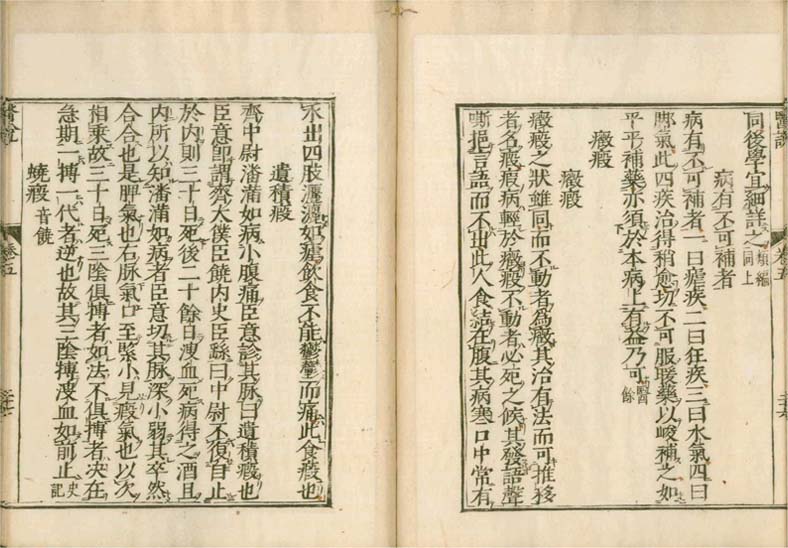 同後學宜細詳之類編同上
病有不可補者
病有不可補者一曰瘧疾二曰狂疾三曰水氣四曰
脚氣此四疾治得稍愈切不可服暖藥以峻補之如
平平補藥亦須於本病上有益乃可醫餘
癥瘕
癥瘕
癥瘕之狀雖同而不動者為癥其治有法而可推移
者名瘕瘕病輕於癥癥不動者必死之候其發語聲
嘶挹言語而不出此人食結在腹其病寒口中常有
水出四肢灑灑如瘧飲食不能鬱鬱而痛此食瘕也
遺積瘕
齊中尉潘滿如病小腹痛臣意診其脉曰遺積瘕也
臣意即謂齊大僕臣饒內史臣繇曰中尉不復自止
於內則三十日死後二十餘日溲血死病得之酒且
內所以知潘滿如病者臣意切其脉深小弱其卒然
合合也是脾氣也右脉氣口至緊小見瘕氣也以次
相乘故三十日死三陰俱搏者如法不俱搏者决在
急期一搏一代者近也故其三陰搏溲血如前止史記
蟯瘕音饒
醫說
卷五